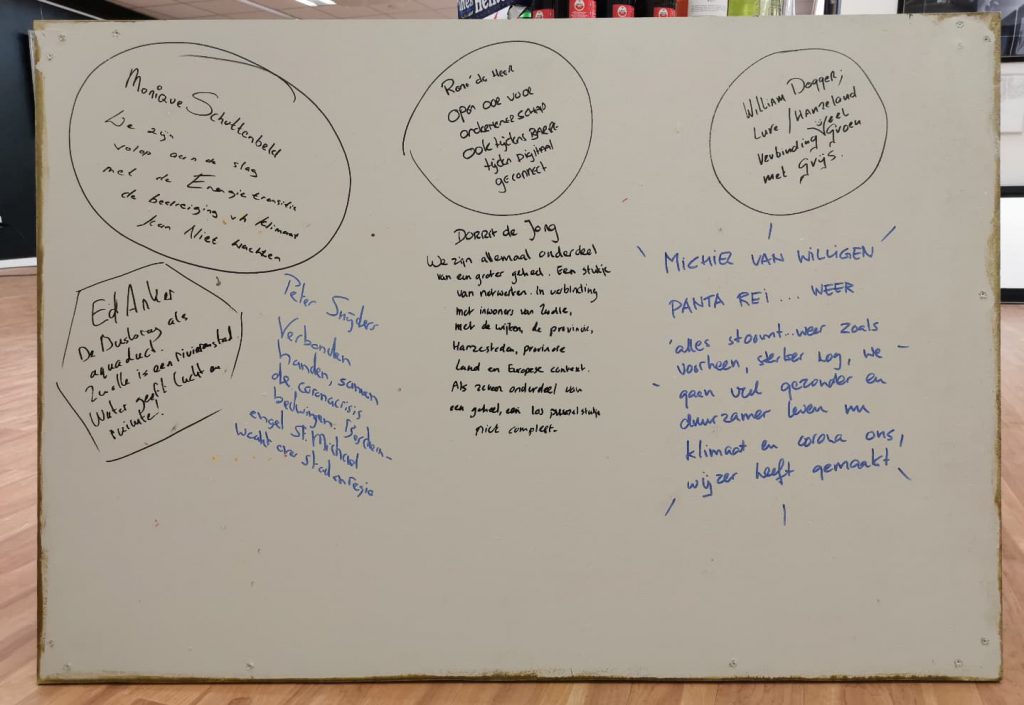 Monique Schuttenbeld
We zijn
volop aan de slag
met de Energietransitie
de bedreiging vh klimaat
kan Niet wachten
René de Heer
Open ook voor
ondernemerschap
ook tijdens
tijden Digitaal
geconnect
William Dogger;
Lure / Hanzeland
Verbinding veel Groen
met Grijs.
Ed Anker
De Busbrug als
aquaduct.
Zwolle is een rivierenstad
Water geeft lucht en
ruimte!
Peter Snijders
Verbonden
handen, samen
de coronacrisis
bedwingen. Bescherm-
engel St. Michael
waakt over stad en regio
Dorrit de Jong
We zijn allemaal onderdeel
van een groter geheel. Een stukje
van netwerken. In verbinding
met inwoners van Zwolle,
met de wijken, de provincie,
Hanzesteden, provincie
Land en Europese context.
Als schon onderdeel van
een geheel, een los puzzelstukje
niet compleet-
MICHIEL VAN WILLIGEN
PANTA REI ... WEER
alles stroomt... weer zoals
voorheen, sterker nog, we
gaan veel gezonder en
duurzamer leven nu
klimaat en corona ons,
wijzer heeft gemaakt